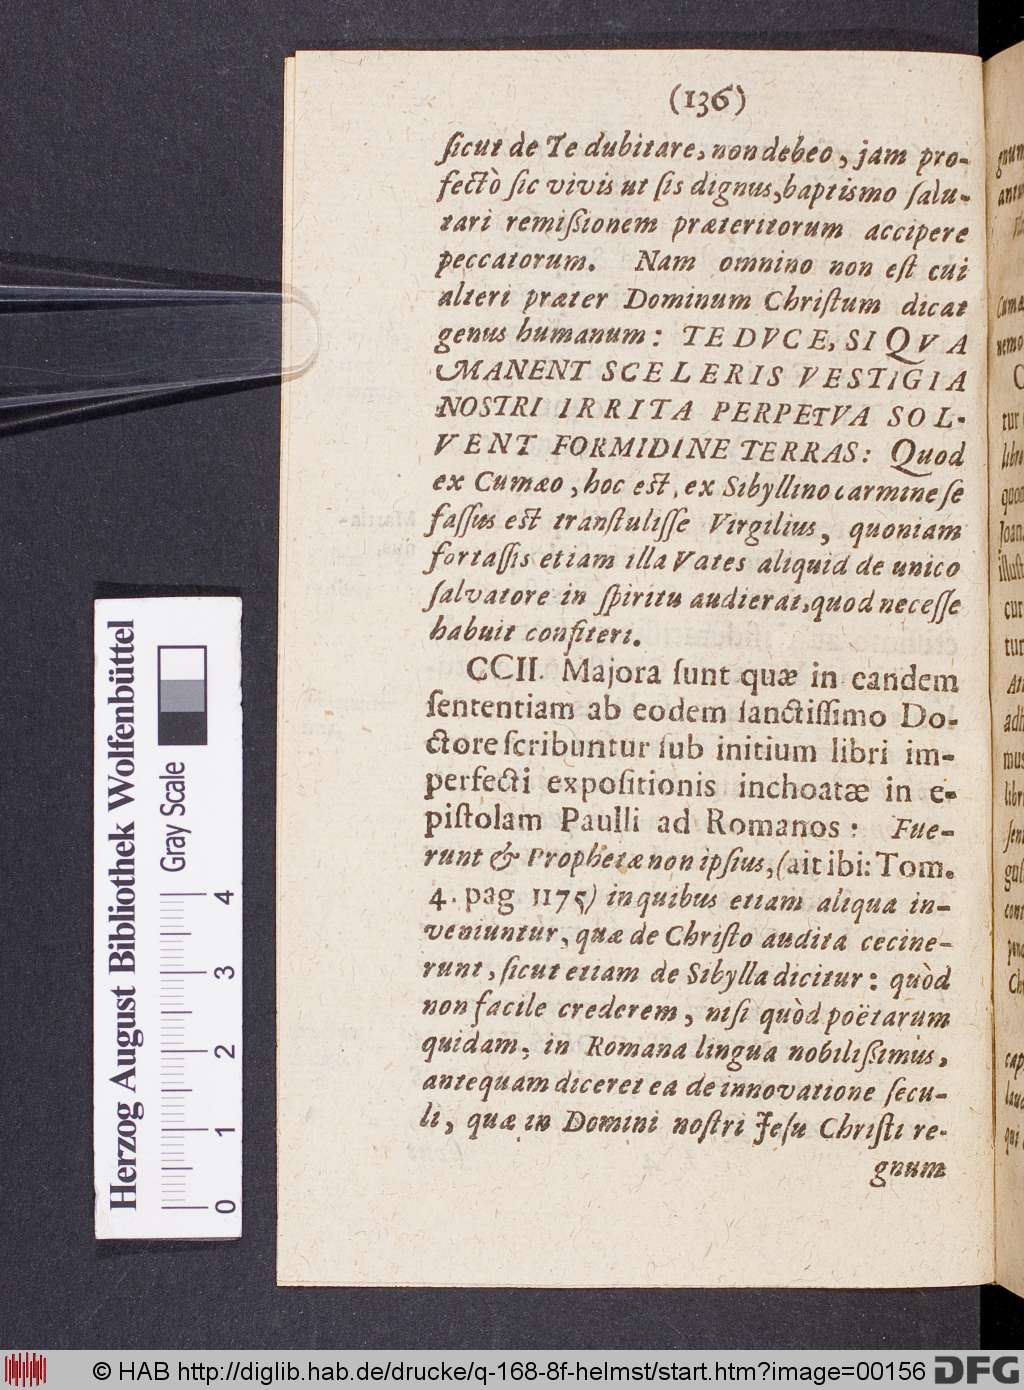 (136)
sicut de Te dubitare, non debeo, jam pro-
fectò sic vivis ut sis dignus, baptismo salu-
tari remissionem præteritorum accipere
peccatorum. Nam omnino non est cui
alteri præter Dominum Christum dicat
genus humanum: TE DVCE, SI QVA
MANENT SCELERIS VESTIGIA
NOSTRI IRRITA PERPETVA SOL-
VENT FORMIDINE TERRAS: Quod
ex Cumæo, hoc est, ex Sibyllino carmine se
fassus est transtulisse Virgilius, quoniam
fortassis etiam illa Vates aliquid de unico
salvatore in spiritu audierat, quod necesse
habuit confiteri.
CCII. Majora sunt quæ in eandem
sententiam ab eodem sanctissimo Do-
ctore scribuntur sub initium libri im-
perfecti expositionis inchoatæ in e-
pistolam Paulli ad Romanos: Fue-
runt & Prophetæ non ipsius, (ait ibi: Tom.
4. pag 1175) in quibus etiam aliqua in-
veniuntur, quæ de Christo audita cecine-
runt, sicut etiam de Sibylla dicitur: quòd
non facile crederem, nisi quòd poëtarum
quidam, in Romana lingua nobilissimus,
antequam diceret ea de innovatione secu-
li, quæ in Domini nostri Jesu Christi re-
gnum
Herzog August Bibliothek Wolfenbüttel
Gray Scale
0 1 2 3 4
© HAB http://diglib.hab.de/drucke/q-168-8f-helmst/start.htm?image=00156
DFG